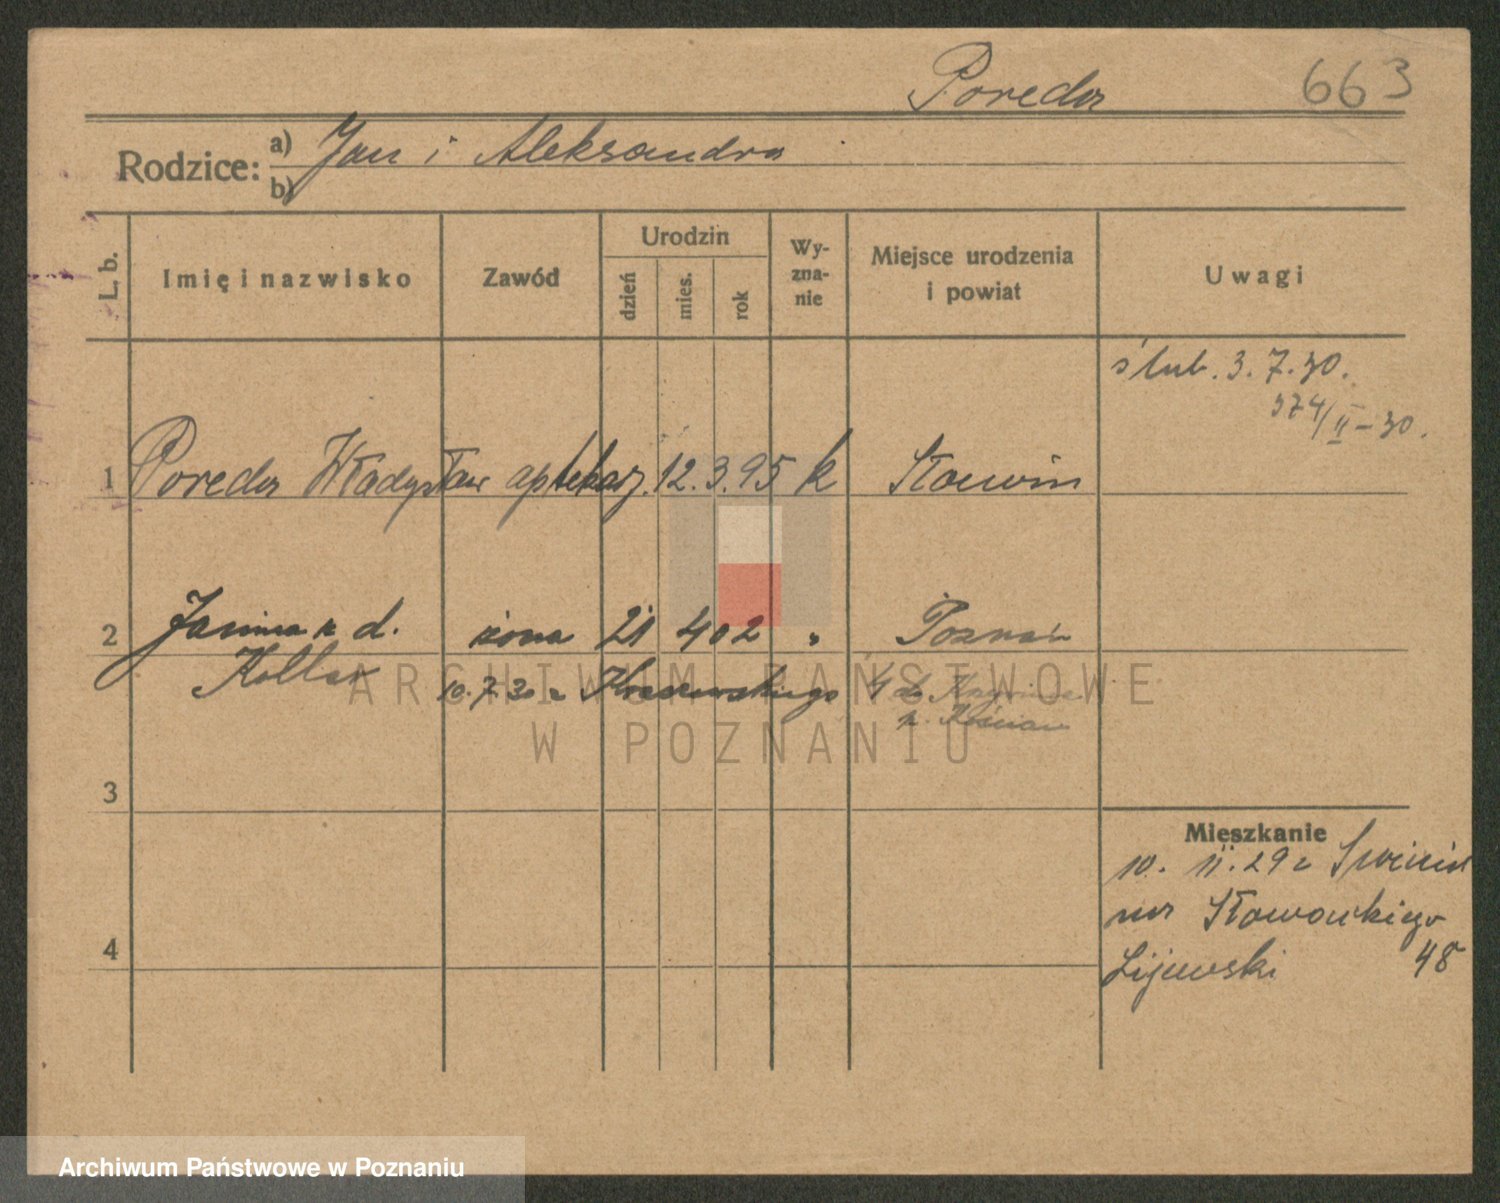 Poreda 663
Rodzice: a) Jan i Aleksandra
b)
L. b.
Imię i nazwisko
Zawód
Urodzin
dzień
mies.
rok
Wy-
zna-
nie
Miejsce urodzenia
i powiat
Uwagi
ślub. 3.7.30.
374/II-30.
1 Poreda Władysław aptekarz. 12. 3. 95 k Słowin
2 Janina z d. żona 21 4 02 " Poznań
Kollat 10.7.30 z Kraszewskiego 4 do
p. Kościan
3
Mieszkanie
10. 11. 29 z
na Słowackiego
4 Lijewski 48
ARCHIWUM PAŃSTWOWE
W POZNANIU
Archiwum Państwowe w Poznaniu